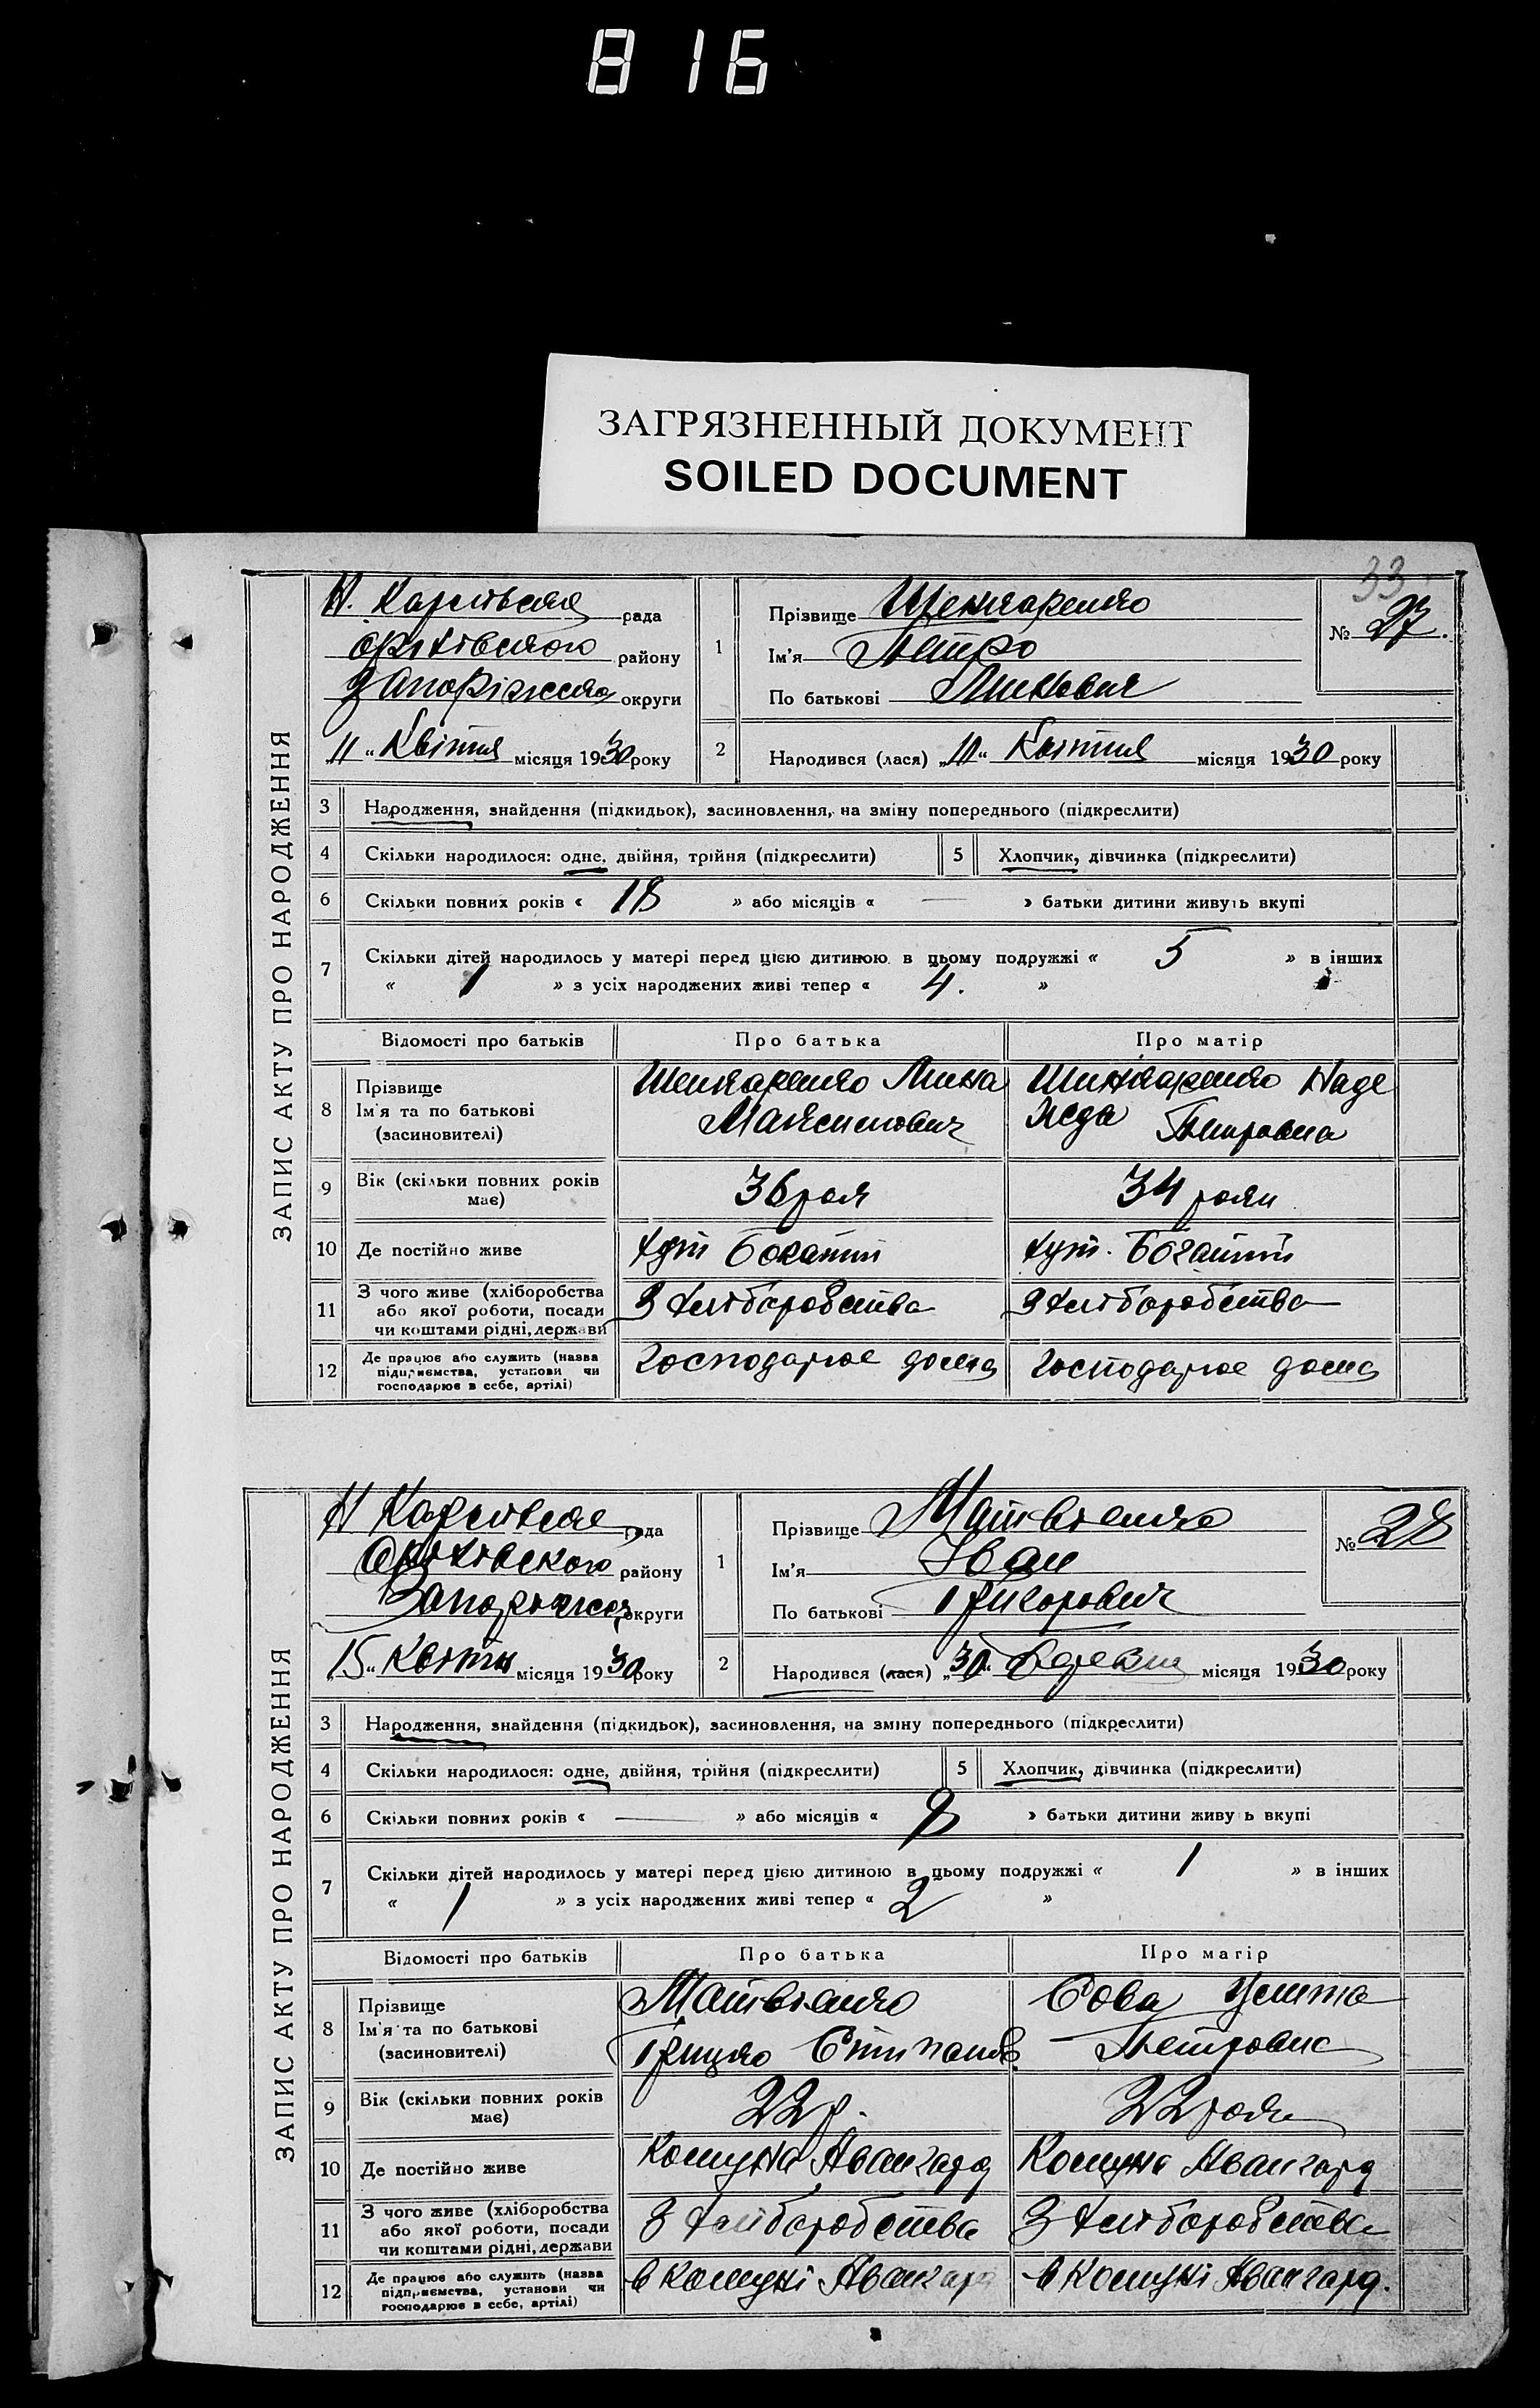 816
ЗАГРЯЗНЕННЫЙ ДОКУМЕНТ
SOILED DOCUMENT
33
ЗАПИС АКТУ ПРО НАРОДЖЕННЯ
Н. Карлівська рада
Оріхівського району
Запоріжська округи
„11“ Квітня місяця 1930 року
1
Прізвище
Ім'я Петро
По батькові
№ 27.
2
Народився (лася) „10“ Квітня місяця 1930 року
3 Народження, знайдення (підкидьок), засиновлення, на зміну попереднього (підкреслити)
4 Скільки народилося: одне, двійня, трійня (підкреслити)
5 Хлопчик, дівчинка (підкреслити)
6 Скільки повних років « 18 » або місяців « — » батьки дитини живуть вкупі
7 Скільки дітей народилось у матері перед цією дитиною в цьому подружжі « 5 » в інших
« 1 » з усіх народжених живі тепер « 4. »
Відомості про батьків Про батька Про матір
8 Прізвище
Ім'я та по батькові
(засиновителі)
Максимович
Надежда Петровна
9 Вік (скільки повних років має) 36 рок 34 роки
10 Де постійно живе хут Богатий хут. Богатий
11 З чого живе (хліборобства або якої роботи, посади чи коштами рідні, держави З хліборобства З хліборобства
12 Де працює або служить (назва підприємства, установи чи господарює в себе, артілі) Господарює дома Господарює дома
ЗАПИС АКТУ ПРО НАРОДЖЕННЯ
Н Карлівська рада
Оріхівского району
Запоріжска округи
„15“ Квітн місяця 1930 року
1
Прізвище Матвієнко
Ім'я Іван
По батькові Григорович
№ 28
2
Народився (лася) „30“ Березня місяця 1930 року
3 Народження, знайдення (підкидьок), засиновлення, на зміну попереднього (підкреслити)
4 Скільки народилося: одне, двійня, трійня (підкреслити)
5 Хлопчик, дівчинка (підкреслити)
6 Скільки повних років « — » або місяців « » батьки дитини живуть вкупі
7 Скільки дітей народилось у матері перед цією дитиною в цьому подружжі « 1 » в інших
« 1 » з усіх народжених живі тепер « 2 »
Відомості про батьків Про батька Про матір
8 Прізвище
Ім'я та по батькові
(засиновителі)
Матвієнко
Грицко
Сова
Петровна
9 Вік (скільки повних років має) 22 р. 22 роки
10 Де постійно живе Комуна Авангард Комуна Авангард
11 З чого живе (хліборобства або якої роботи, посади чи коштами рідні, держави З хліборобства З хліборобства
12 Де працює або служить (назва підприємства, установи чи господарює в себе, артілі) в Комуні Авангард в Комуні Авангард.